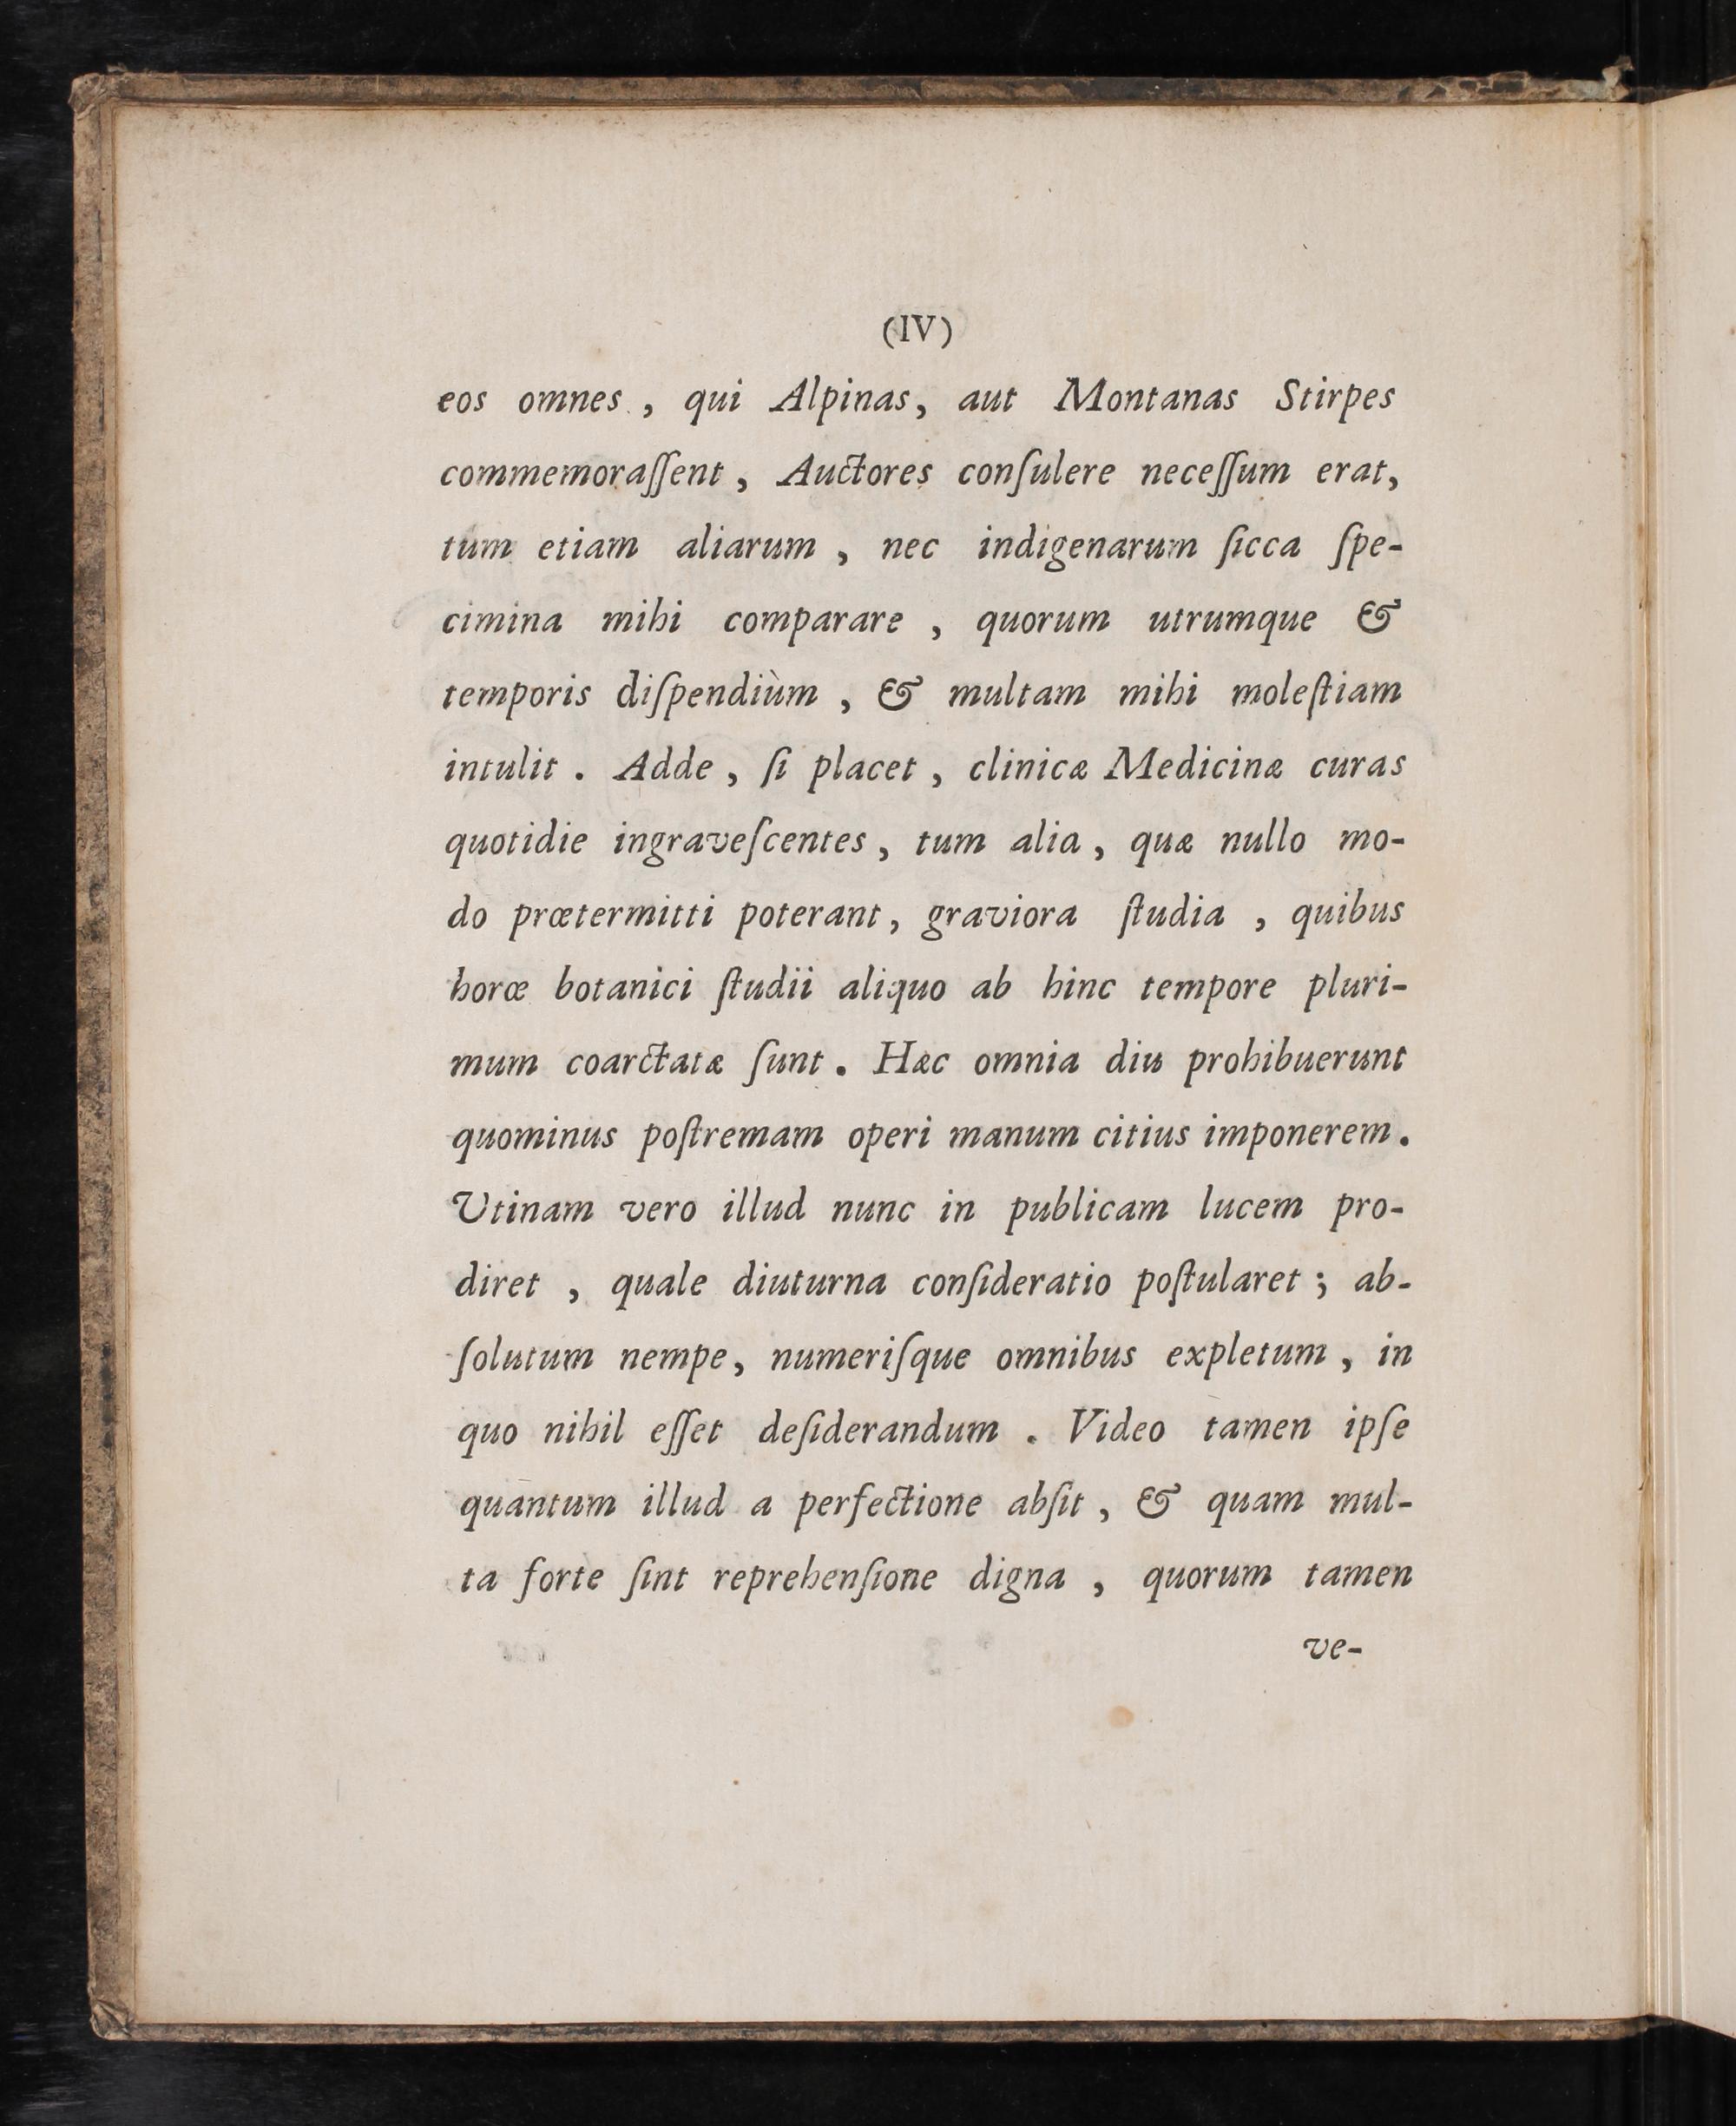 (IV)
eos omnes, qui Alpinas, aut Montanas Stirpes
commemoraſſent, Auctores conſulere neceſſum erat,
tum etiam aliarum, nec indigenarum ſicca ſpe-
cimina mihi comparare, quorum utrumque &
temporis diſpendiùm, & multam mihi moleſtiam
intulit. Adde, ſi placet, clinicæ Medicinæ curas
quotidie ingraveſcentes, tum alia, quæ nullo mo-
do prœtermitti poterant, graviora ſtudia, quibus
horœ botanici ſtudii aliquo ab hinc tempore pluri-
mum coarctatæ ſunt. Hæc omnia diu prohibuerunt
quominus poſtremam operi manum citius imponerem.
Utinam vero illud nunc in publicam lucem pro-
diret, quale diuturna conſideratio poſtularet; ab-
ſolutum nempe, numeriſque omnibus expletum, in
quo nihil eſſet deſiderandum. Video tamen ipſe
quantum illud a perfectione abſit, & quam mul-
ta forte ſint reprehenſione digna, quorum tamen
ve-